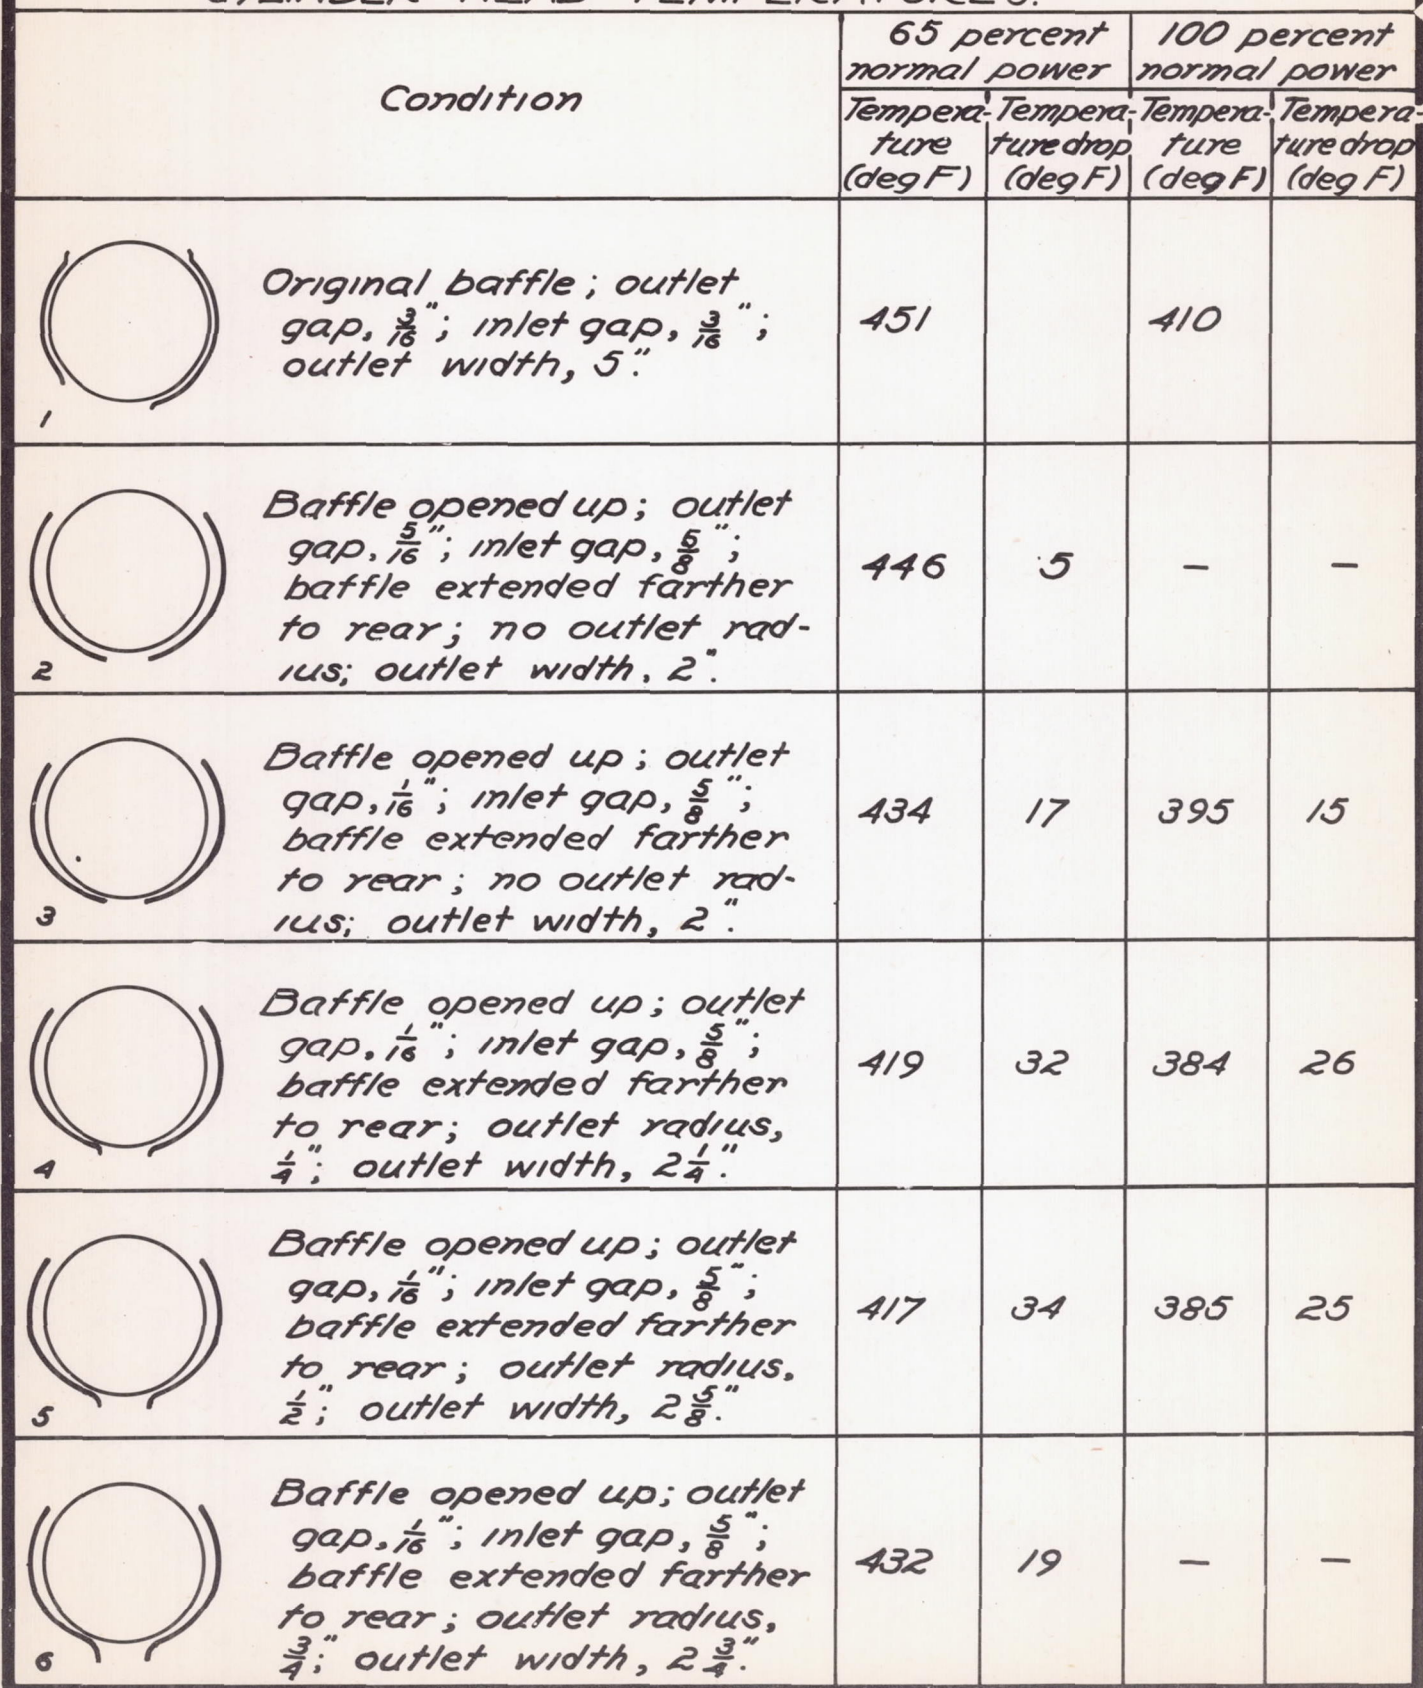 CYLINDER HEAD TEMPERATURES.
65 percent normal power
100 percent normal power
Condition
Tempera-
ture
(deg F)
Tempera-
ture drop
(deg F)
Tempera-
ture
(deg F)
Tempera-
ture drop
(deg F)
1
Original baffle; outlet
gap, 3/16"; inlet gap, 3/16";
outlet width, 5".
451
410
2
Baffle opened up; outlet
gap, 5/16"; inlet gap, 5/8";
baffle extended farther
to rear; no outlet rad-
ius; outlet width, 2".
446
5
—
—
3
Baffle opened up; outlet
gap, 1/16"; inlet gap, 5/8";
baffle extended farther
to rear; no outlet rad-
ius; outlet width, 2".
434
17
395
15
4
Baffle opened up; outlet
gap, 1/16"; inlet gap, 5/8";
baffle extended farther
to rear; outlet radius,
1/4"; outlet width, 2 1/4".
419
32
384
26
5
Baffle opened up; outlet
gap, 1/16"; inlet gap, 5/8";
baffle extended farther
to rear; outlet radius,
1/2"; outlet width, 2 5/8".
417
34
385
25
6
Baffle opened up; outlet
gap, 1/16"; inlet gap, 5/8";
baffle extended farther
to rear; outlet radius,
3/4"; outlet width, 2 3/4".
432
19
—
—